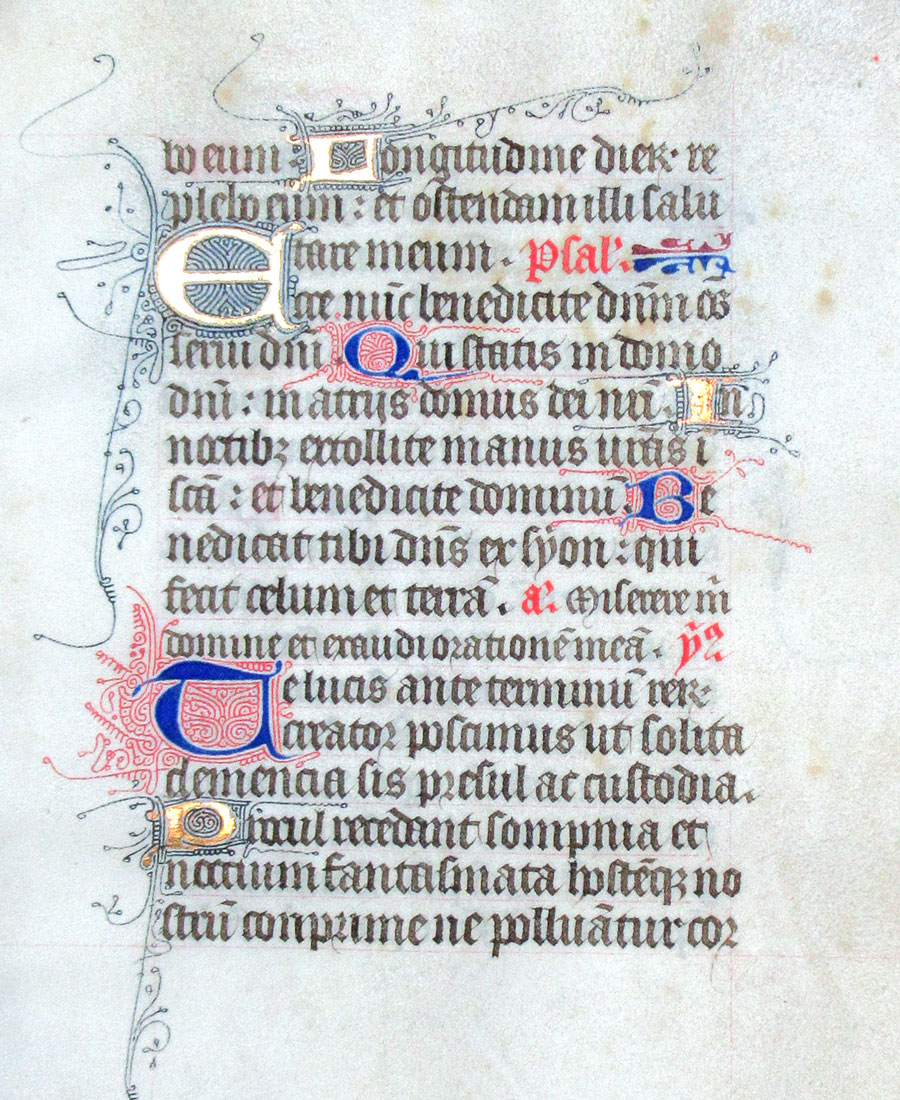 bo eum. Longitudine dierꝝ· re
plebo eum : et ostendam illi salu
tare meum. Psal'.
Ecce nūc benedicite dn̄m oēs
serui dn̄i. Qui statis in domo
dn̄i : in atriis domus dei nr̄i. In
noctibꝫ extollite manus urās ī
scā : et benedicite dominū. Be
nedicat tibi dn̄s ex syon : qui
fecit celum et terrā. a'. Miserere m̄
domine et exaudi orationē meā. ym̄
Te lucis ante terminū rerꝝ
creator poscimus ut solita
clemencia sis presul ac custodia.
Procul recedant sompnia et
noctium fantasmata hostēqꝫ no
strū conprime ne polluātur cor